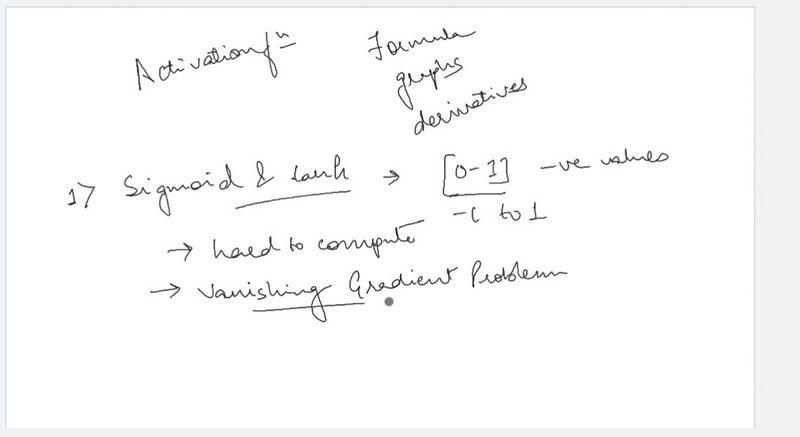 Activation fn
Formula
graphs
derivatives
1) Sigmoid & tanh → [0-1] -ve values
-1 to 1
→ hard to compute
→ Vanishing Gradient Problem